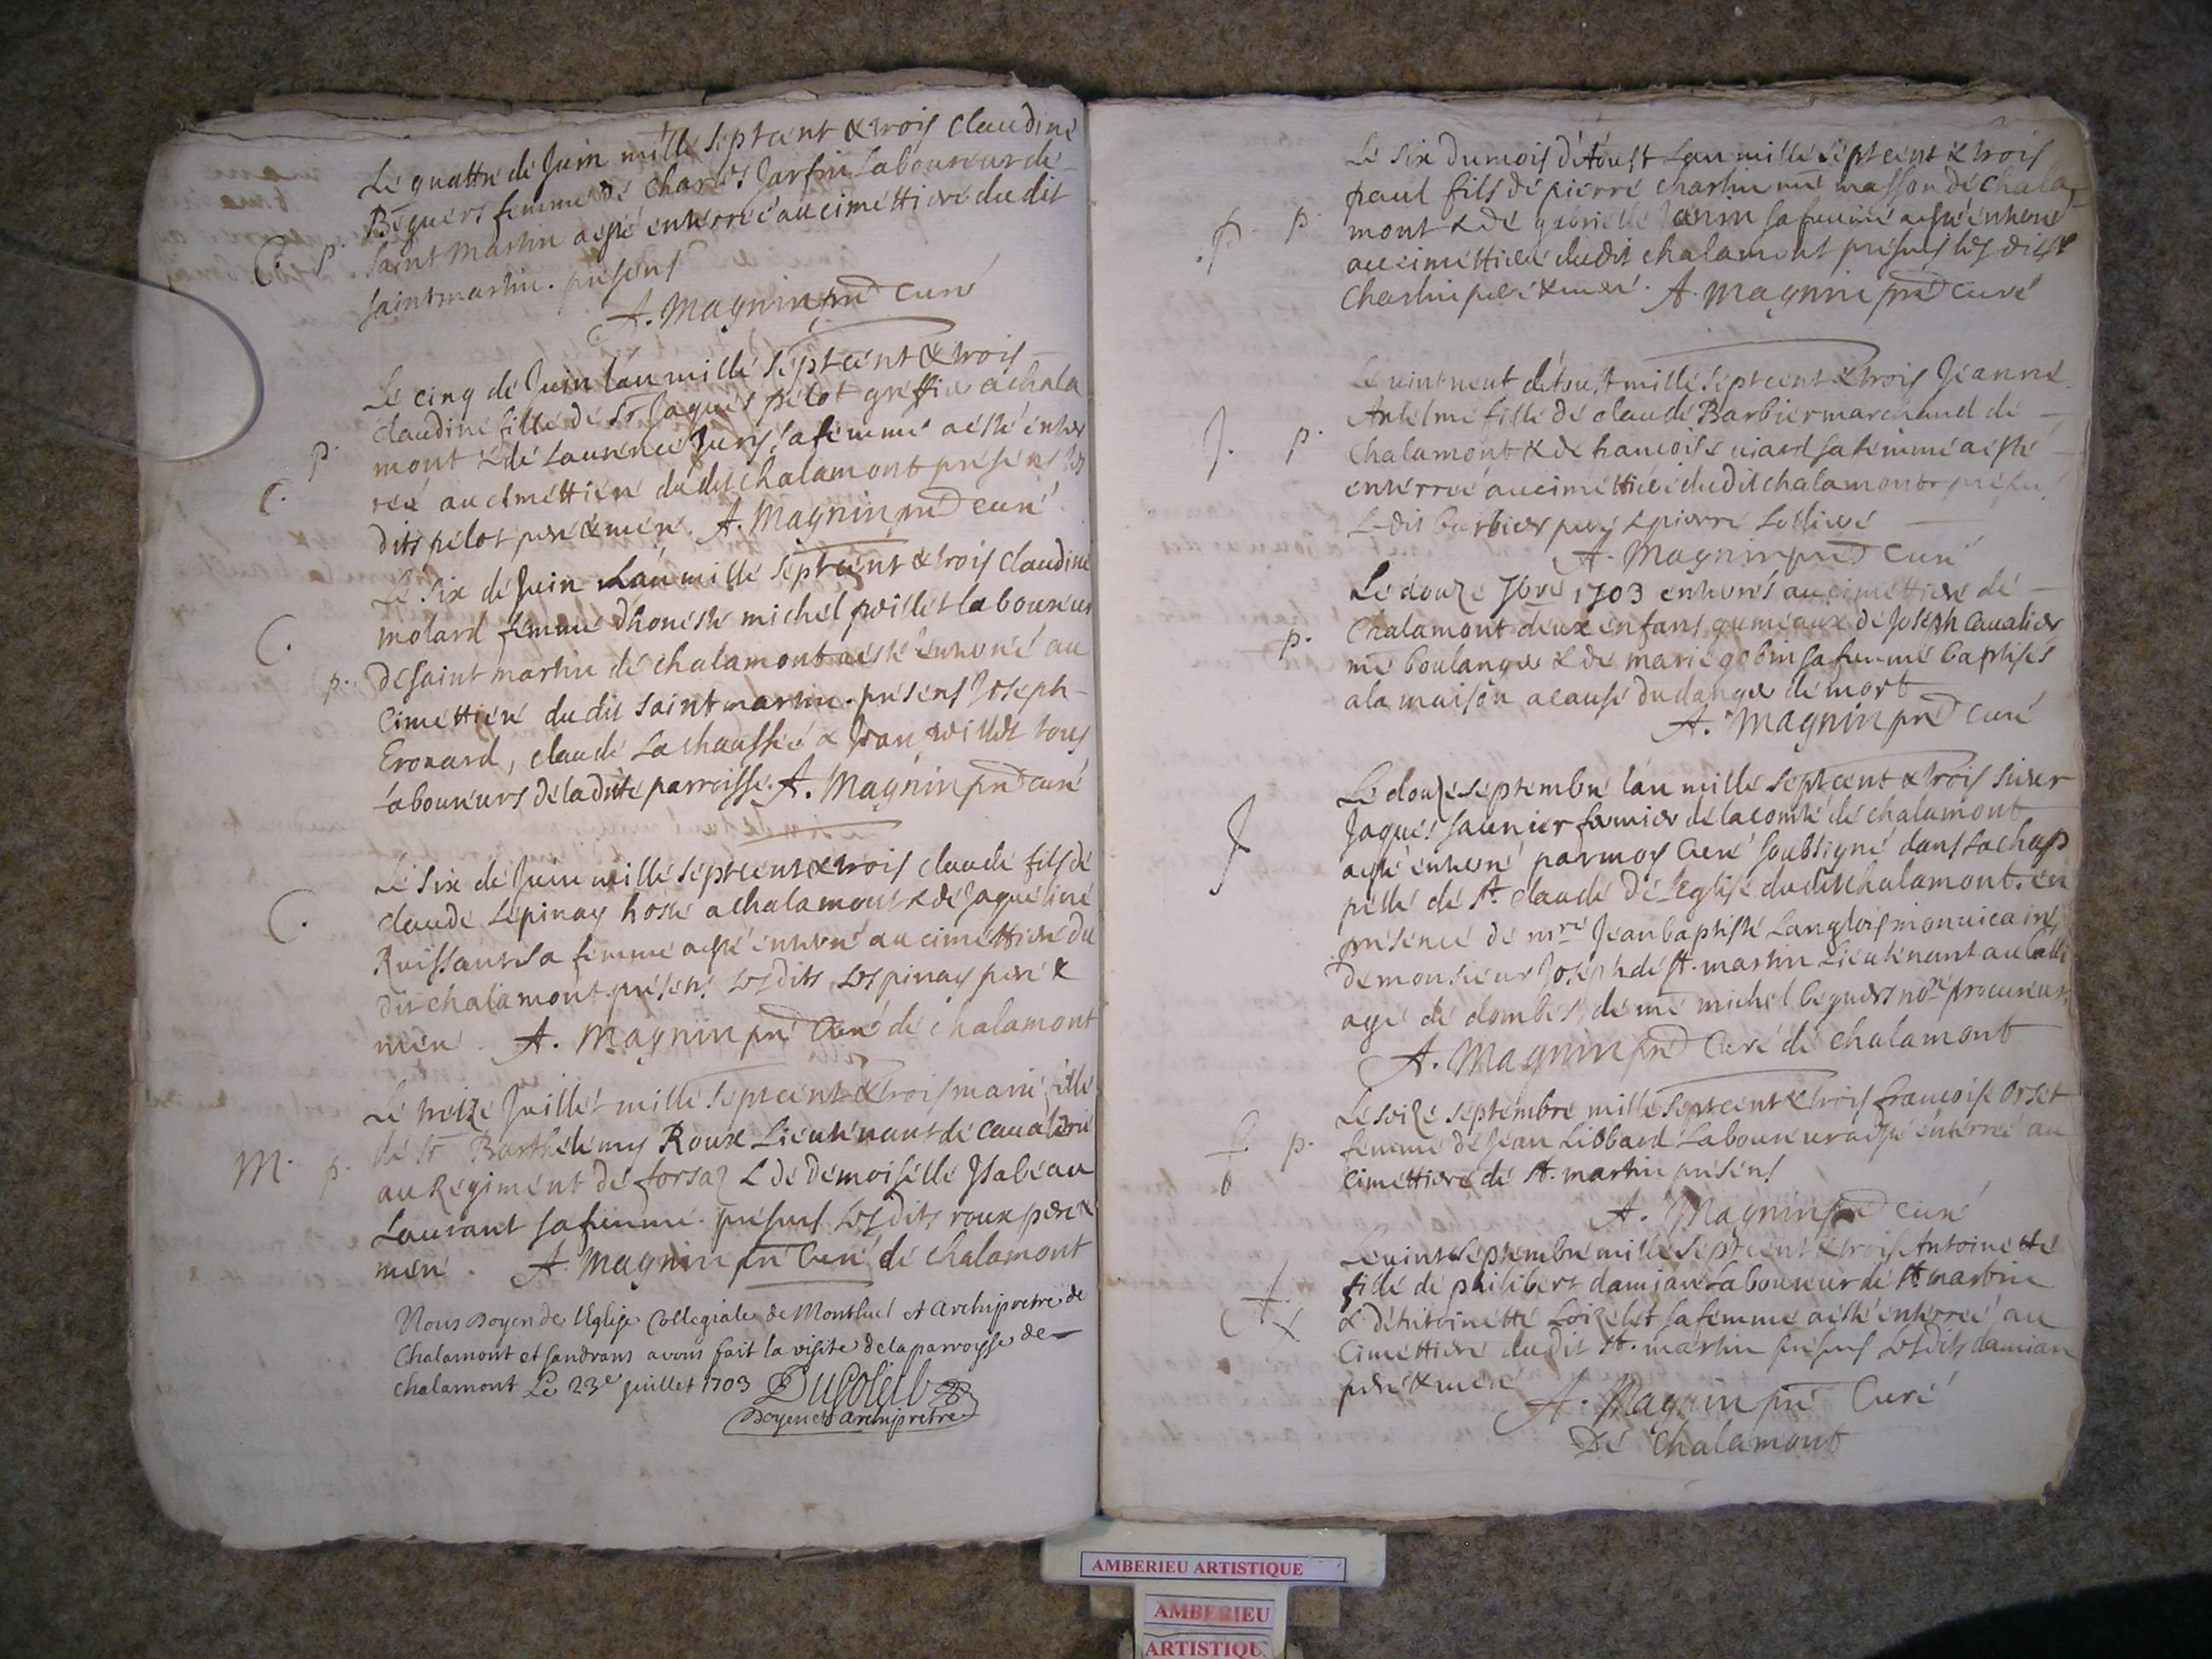 Le quattre de Juin mille sept cent & trois Claudine
Beguers femme de Charles Jarfin Laboureur de
C. p. saint martin a esté enterrée au cimettiere du dit
saint martin. présens
A. Magnin pre Curé
Le cinq de Juin l'an mille sept cent & trois
claudine fille de Sr Jaques pelot greffier a chala
p. mont & de Laurence Juris sa femme a esté enter
C. rée au cimettiere dudit chalamont présens les
dits pelot pere & mere. A. Magnin pre curé
Le six de Juin L'an mille sept cent & trois Claudine
C. molard femme d'honeste michel peillet laboureur
p. de saint martin de chalamont a esté enterré au
Cimettiere du dit saint martin. présens Joseph
Eronard, claude Lachaussée & Jean peillet tous
laboureurs de la dite parroisse. A. Magnin pre curé
Le six de Juin mille sept cent & trois claude fils de
C. claude Lépinay hoste a chalamont & de Jaqueline
Ruissant sa femme a esté enterré au cimettiere du
dit chalamont présens Les dits Lespinay pere &
mere. A. Magnin pre Curé de chalamont
Le treize Juillet mille sept cent & trois marie fille
de Sr Barthelemy Roux Lieutenant de cavalerie
M. p. au Regiment de forsaz & de demoiselle Isabeau
Laurant sa femme. présens Les dits roux pere &
mere. A. Magnin pre Curé de chalamont
Nous Doyen de l'Eglise Collegiale de Montluel et Archipretre de
Chalamont et Sandrans avons fait la visite de la parroysse de
chalamont Le 23e Juillet 1703 DuSoleil
Doyen et archipretre
Le six du mois d'Aoust L'an mille sept cent & trois
paul fils de pierre charlin me masson de Chala
p. p. mont & de gabrielle Janin sa femme a esté enterré
au cimettiere du dit chalamont présens les dits
Charlin pere & mere. A. Magnin pre Curé
Le vint neuf d'Aoust mille sept cent & trois Jeanne
Antelme fille de claude Barbier marchand de
J. p. Chalamont & de francoise viard sa femme a esté
enterrée au cimettiere du dit chalamont présens
Le dit barbier pere & pierre
A. Magnin pre Curé
Le douze 7bre 1703 enterrés au cimettiere de
p. Chalamont deux enfans gumeaux de Joseph Cavalier
me boulanger & de marie gobin sa femme baptisés
a la maison a cause du danger de mort
A. Magnin pre Curé
Le douze septembre l'an mille sept cent & trois sieur
J Jaques saunier fermier de la comté de chalamont
a esté enterré par moy Curé soubsigné dans la chap
pelle de St. claude de l'Eglise du dit chalamont. en
présence de mre Jean baptiste Langlois mon vicaire,
de monsieur Joseph de St. martin Lieutenant au balli
age de dombes, de me michel beguers nore procureur
A. Magnin pre Curé de chalamont
Le seize septembre mille sept cent & trois francoise Orset
f. p. femme de Jean Libbard Laboureur a esté enterrée au
Cimettiere de St. martin présens
A. Magnin pre curé
Le vint septembre mille sept cent & trois Antoinette
A. fille de philibert damian Laboureur de St martin
& d'Antoinette Loizelet sa femme a esté enterrée au
Cimettiere du dit St. martin présens Les dits damian
pere & mere
A. Magnin pre Curé
De Chalamont
AMBERIEU ARTISTIQUE
AMBERIEU
ARTISTIQUE